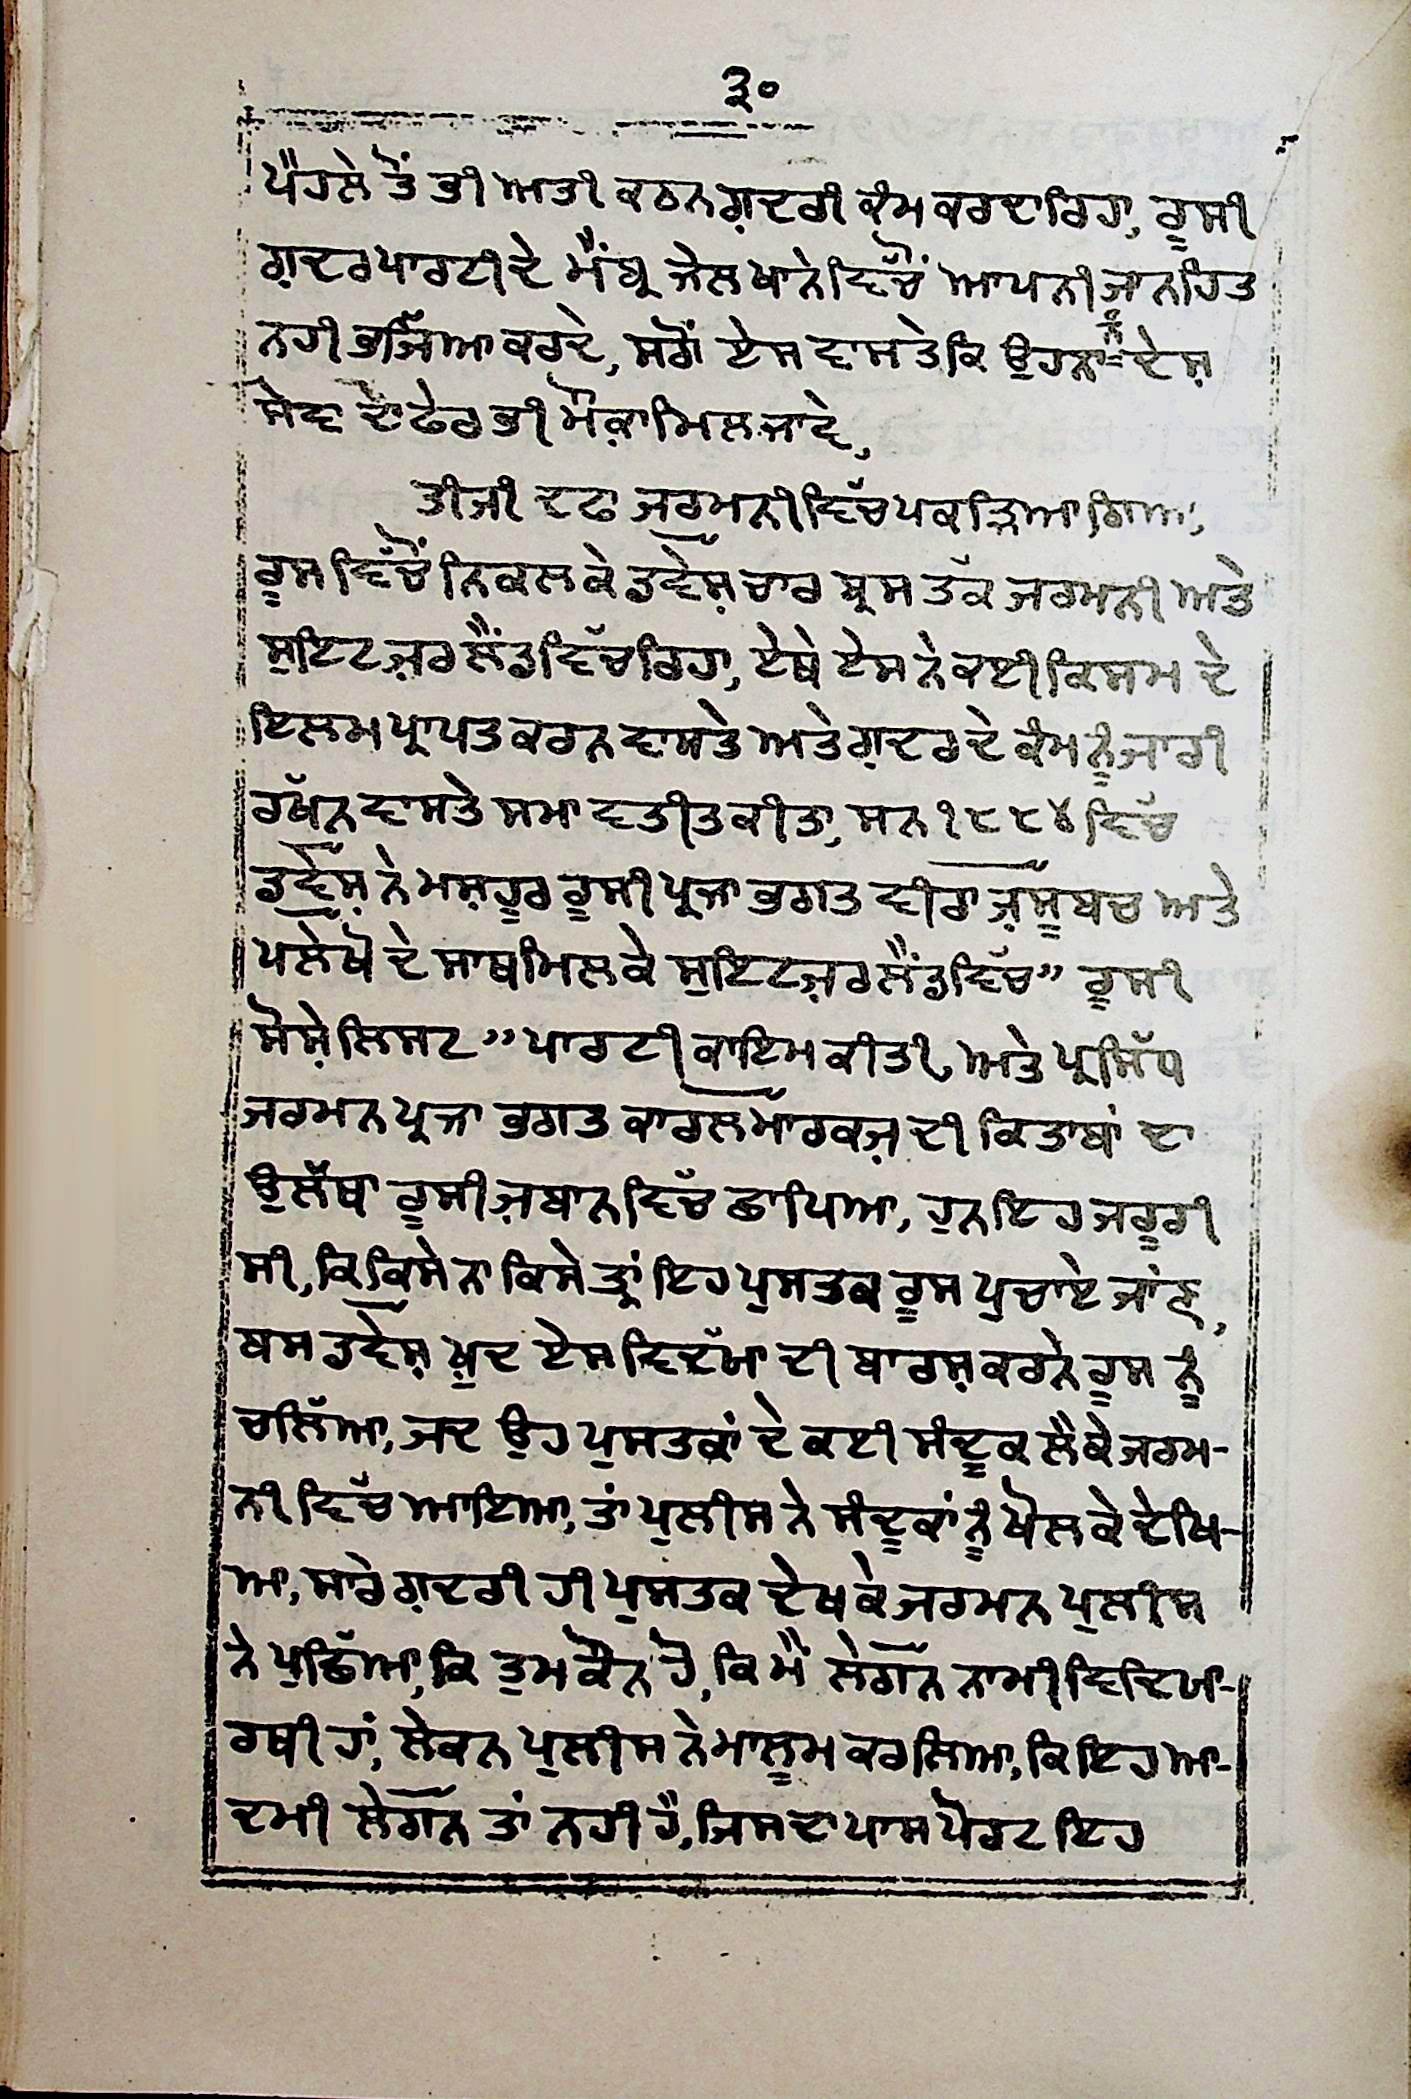 ੩੦
ਪੈਹਲੇ ਤੋਂ ਭੀ ਅਤੀ ਕਠਨ ਗ਼ਦਰੀ ਕੰਮ ਕਰਦਾ ਰਿਹਾ, ਰੂਸੀ
ਗ਼ਦਰ ਪਾਰਟੀ ਦੇ ਮੈਂਬ੍ਰ ਜੇਲਖਾਨੇ ਵਿੱਚੋਂ ਆਪਨੀ ਜਾਨ ਹਿਤ
ਨਹੀ ਭਜਿੱਆ ਕਰਦੇ, ਸਗੋਂ ਏਸ ਵਾਸਤੇ ਕਿ ਉਹਨਾ ਨੂੰ ਦੇਸ਼
ਸੇਵਾ ਦਾ ਫੇਰ ਭੀ ਮੌਕ਼ਾ ਮਿਲ ਜਾਵੇ,
ਤੀਜੀ ਦਫ ਜਰਮਨੀ ਵਿੱਚ ਪਕੜਿਆ ਗਿਆ,
ਰੂਸ ਵਿੱਚੋਂ ਨਿਕਲ ਕੇ ਡਵੇਸ਼ ਚਾਰ ਬ੍ਰਸ ਤੱਕ ਜਰਮਨੀ ਅਤੇ
ਸੁਇਟਜ਼ਰਲੈਂਡ ਵਿੱਚ ਰਿਹਾ, ਏਥੇ ਏਸ ਨੇ ਕਈ ਕਿਸਮ ਦੇ
ਇਲਮ ਪ੍ਰਾਪਤ ਕਰਨ ਵਾਸਤੇ ਅਤੇ ਗ਼ਦਰ ਦੇ ਕੰਮ ਨੂੰ ਜਾਰੀ
ਰਖੱਨ ਵਾਸਤੇ ਸਮਾ ਵਤੀਤ ਕੀਤਾ, ਸਨ ੧੮੮੪ ਵਿੱਚ
ਡਵੇਸ਼ ਨੇ ਮਸ਼ਹੂਰ ਰੂਸੀ ਪ੍ਰਜਾ ਭਗਤ ਵੀਰਾ ਜ਼ਸੂਬਚ ਅਤੇ
ਪਲੇਖੋ ਦੇ ਸਾਥ ਮਿਲ ਕੇ ਸੁਇਟਜ਼ਰਲੈਂਡ ਵਿੱਚ” ਰੂਸੀ
ਸੋਸ਼ੇਲਿਸਟ” ਪਾਰਟੀ ਕਾਇਮ ਕੀਤੀ, ਅਤੇ ਪ੍ਰਸਿੱਧ
ਜਰਮਨ ਪ੍ਰਜਾ ਭਗਤ ਕਾਰਲ ਮਾਰਕਜ਼ ਦੀ ਕਿਤਾਬਾਂ ਦਾ
ਉਲੱਥਾ ਰੂਸੀ ਜ਼ਬਾਨ ਵਿੱਚ ਛਾਪਿਆ, ਹੁਨ ਇਹ ਜਰੂਰੀ
ਸੀ, ਕਿ ਕਿਸੇ ਨਾ ਕਿਸੇ ਤ੍ਰਾਂ ਇਹ ਪੁਸਤਕ ਰੂਸ ਪੁਚਾਏ ਜਾਂਣ,
ਬਸ ਡਵੇਸ਼ ਖ਼ੁਦ ਏਸ ਵਿਦੱਯਾ ਦੀ ਬਾਰਸ਼ ਕਰਨੇ ਰੂਸ ਨੂੰ
ਚਲਿੱਆ, ਜਦ ਉਹ ਪੁਸਤਕਾਂ ਦੇ ਕਈ ਸੰਦੂਕ ਲੈਕੇ ਜਰਮ-
ਨੀ ਵਿੱਚ ਆਇਆ, ਤਾਂ ਪੁਲੀਸ ਨੇ ਸੰਦੂਕਾਂ ਨੂੰ ਖੋਲ ਕੇ ਦੇਖਿ-
ਆ, ਸਾਰੇ ਗ਼ਦਰੀ ਹੀ ਪੁਸਤਕ ਦੇਖ ਕੇ ਜਰਮਨ ਪੁਲੀਸ
ਨੇ ਪੁਛਿੱਆ, ਕਿ ਤੁਮ ਕੌਨ ਹੋ, ਕਿ ਮੈਂ ਲੇਗਨ ਨਾਮੀ ਵਿਦਿਯਾ-
ਰਥੀ ਹਾਂ, ਲੇਕਨ ਪੁਲੀਸ ਨੇ ਮਾਲੂਮ ਕਰ ਲਿਆ, ਕਿ ਇਹ ਆ-
ਦਮੀ ਲੇਗਨ ਤਾਂ ਨਹੀ ਹੈ, ਜਿਸ ਦਾ ਪਾਸਪੋਰਟ ਇਹ